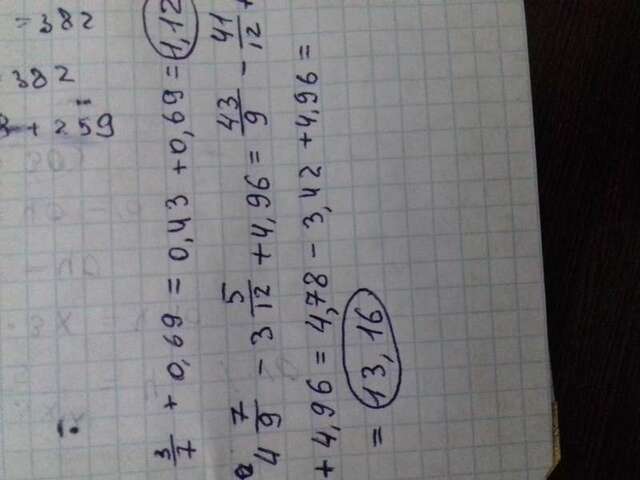 = 382
382
+ 259
3/7 + 0,69 = 0,43 + 0,69 = 1,12
4 7/9 - 3 5/12 + 4,96 = 43/9 - 41/12 +
+ 4,96 = 4,78 - 3,42 + 4,96 =
= 13,16